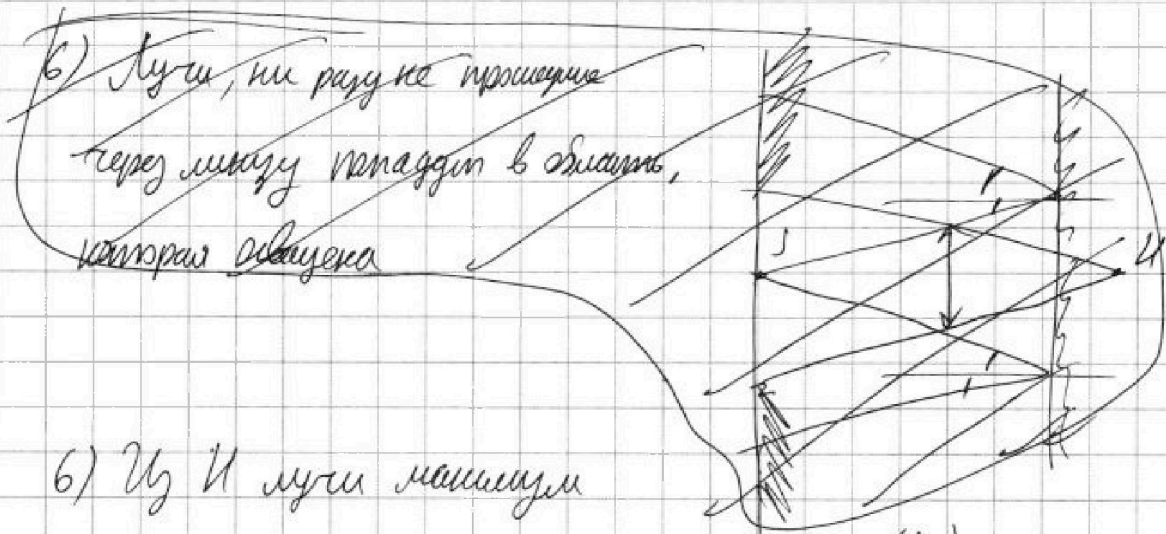 6) Лучи, ни разу не прошедшие
через линзу попаддут в область,
которая освещена
S
И
6) Из И лучи максимум